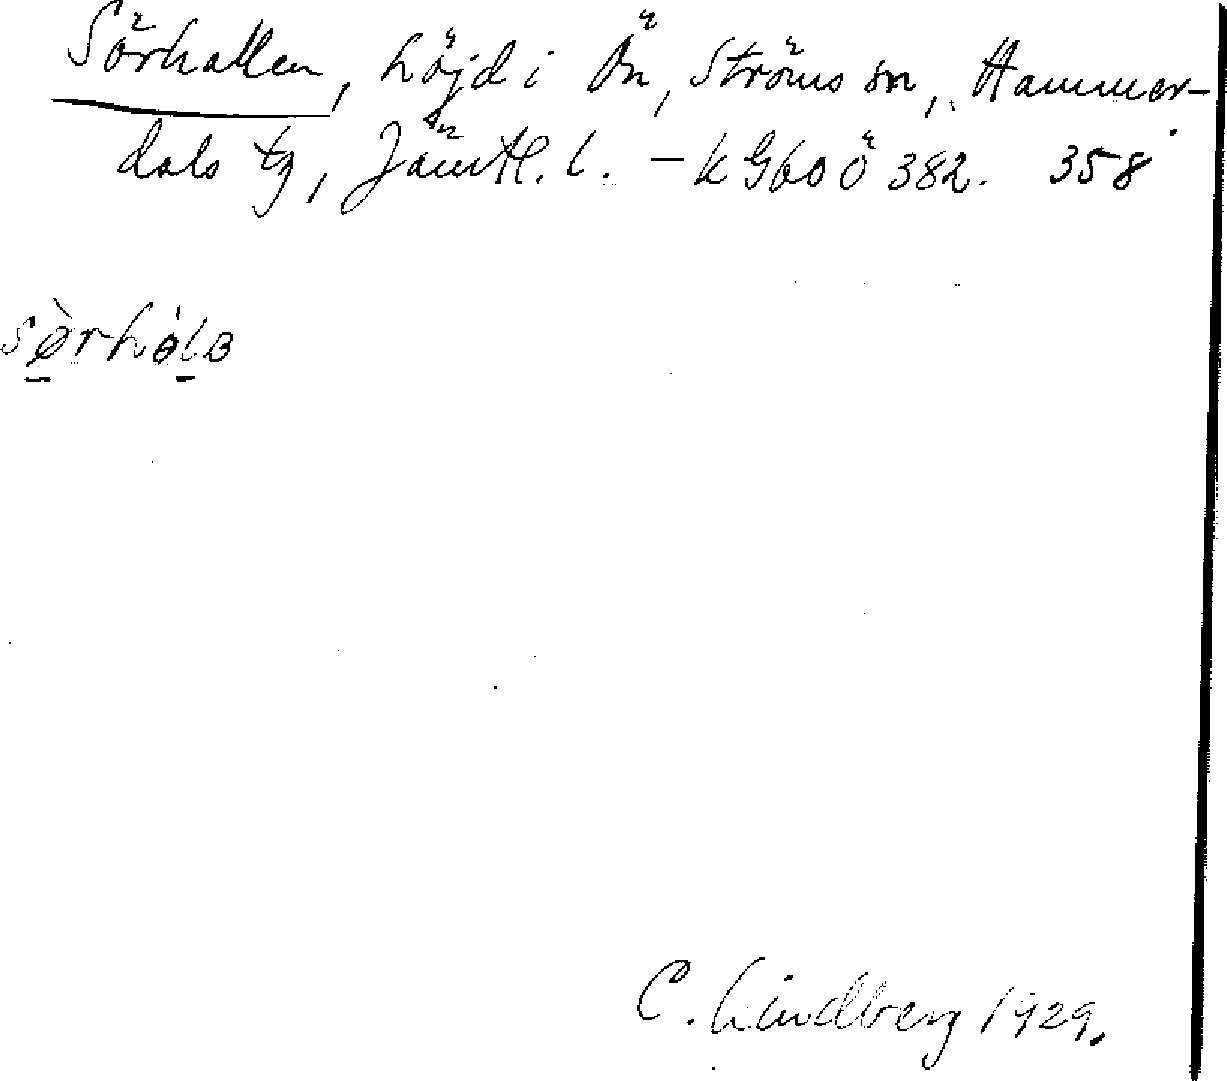 Sörhallen, höjd i Ön, Ströms sn, Hammer-
dals tg, Jämtl. l. – k G60 Ö 382. 358
sø̀rhólɞ
C. Lindberg 1929.